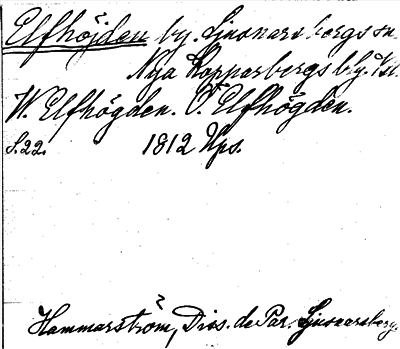 Elfhöjden by. Ljusnarsbergs sn.
Nya Kopparbergs blg. Vsl.
W. Elfhögden. Ö. Elfhögden.
S. 22. 1812 Ups.
Hammarström, Diss. de Par. Ljusnarsberg.